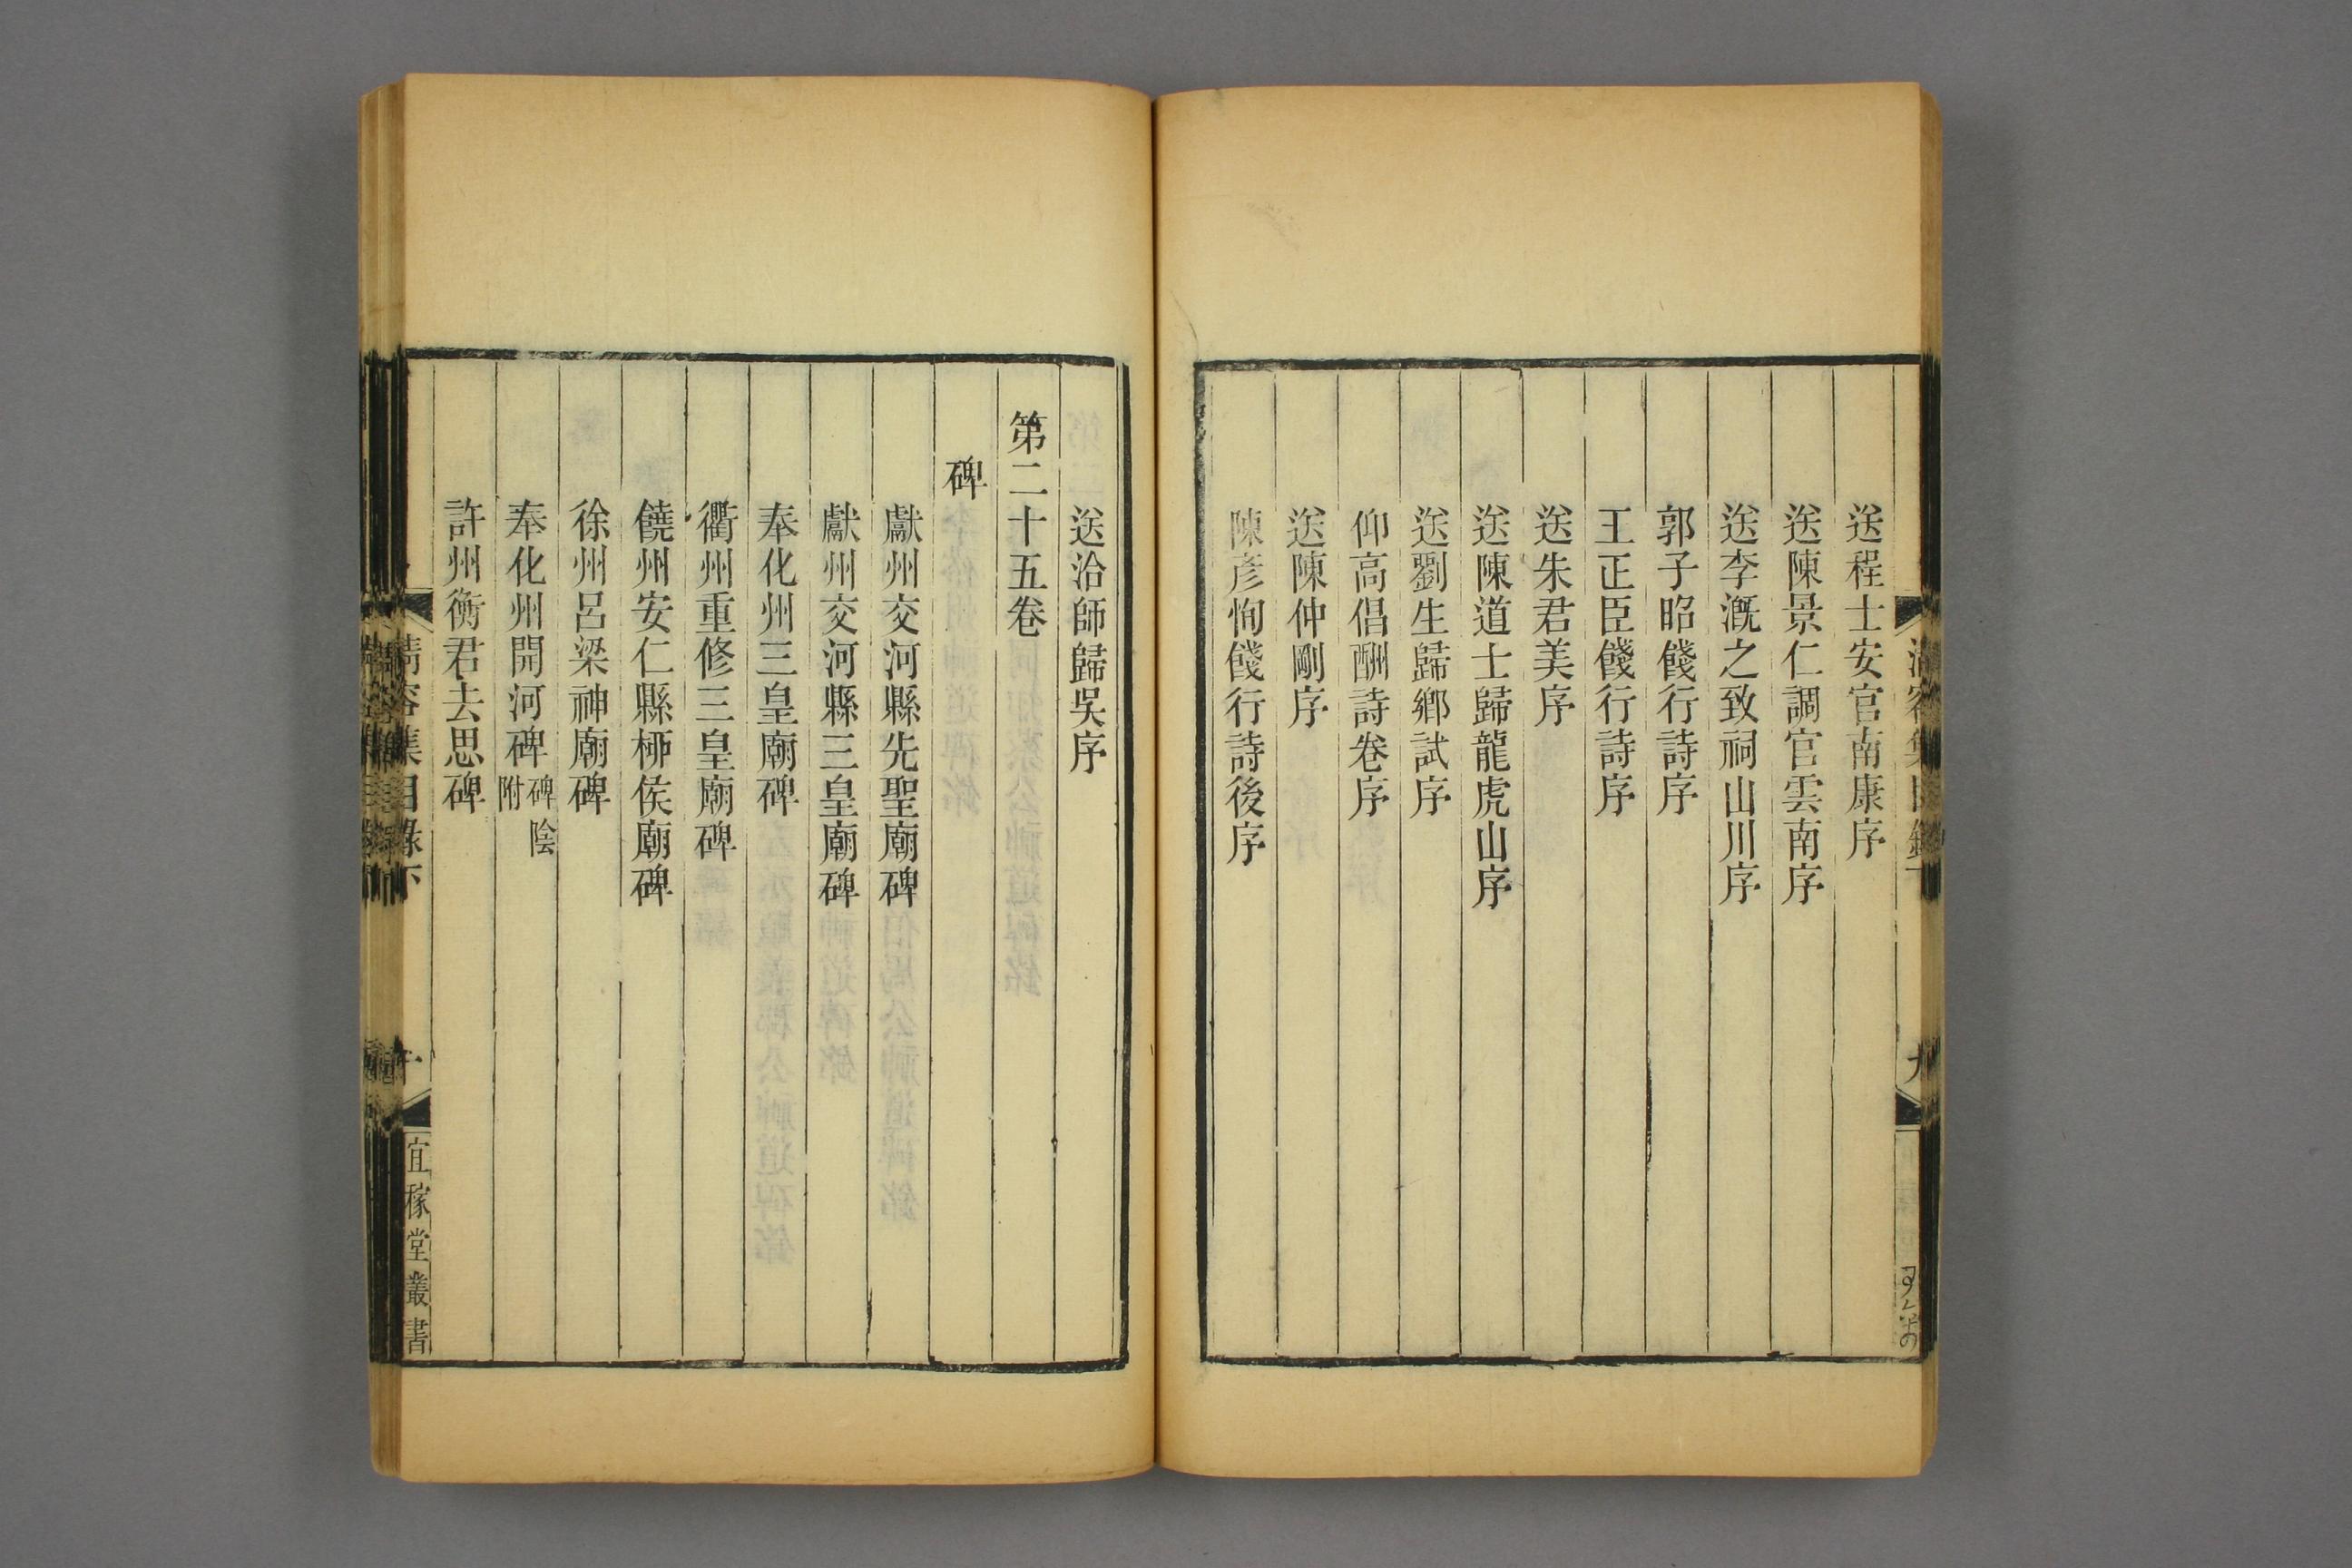 送程士安官南康序
送陳景仁調官雲南序
送李漑之致祠山川序
郭子昭餞行詩序
王正臣餞行詩序
送朱君美序
送陳道士歸龍虎山序
送劉生歸鄉試序
仰高倡酬詩卷序
送陳仲剛序
陳彥恂餞行詩後序
九
送洽師歸吳序
第二十五卷
碑
獻州交河縣先聖廟碑
獻州交河縣三皇廟碑
奉化州三皇廟碑
衢州重修三皇廟碑
饒州安仁縣柳侯廟碑
徐州呂梁神廟碑
奉化州開河碑碑陰附
許州衡君去思碑
清容集目錄下
十
宜稼堂叢書